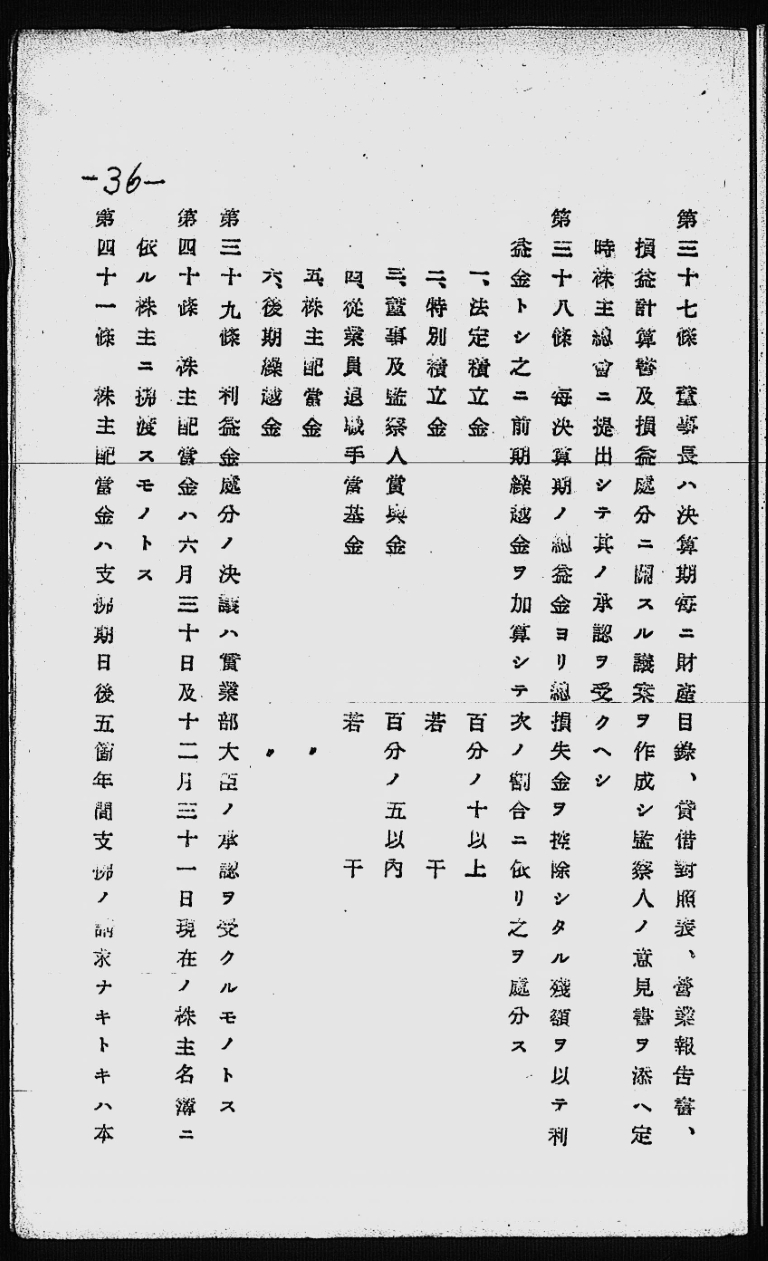 -36-
第三十七條　董事長ハ決算期每ニ財產目錄、貸借對照表、營業報告書、
損益計算書及損益處分ニ關スル議案ヲ作成シ監察人ノ意見書ヲ添ヘ定
時株主總會ニ提出シテ其ノ承認ヲ受クヘシ
第三十八條　每決算期ノ總益金ヨリ總損失金ヲ控除シタル殘額ヲ以テ利
益金トシ之ニ前期繰越金ヲ加算シテ次ノ割合ニ依リ之ヲ處分ス
一、法定積立金　百分ノ十以上
二、特別積立金　若干
三、董事及監察人賞與金　百分ノ五以內
四、從業員退職手當基金　若干
五、株主配當金　〃
六、後期繰越金　〃
第三十九條　利益金處分ノ決議ハ實業部大臣ノ承認ヲ受クルモノトス
第四十條　株主配當金ハ六月三十日及十二月三十一日現在ノ株主名簿ニ
依ル株主ニ拂渡スモノトス
第四十一條　株主配當金ハ支拂期日後五箇年間支拂ノ請求ナキトキハ本